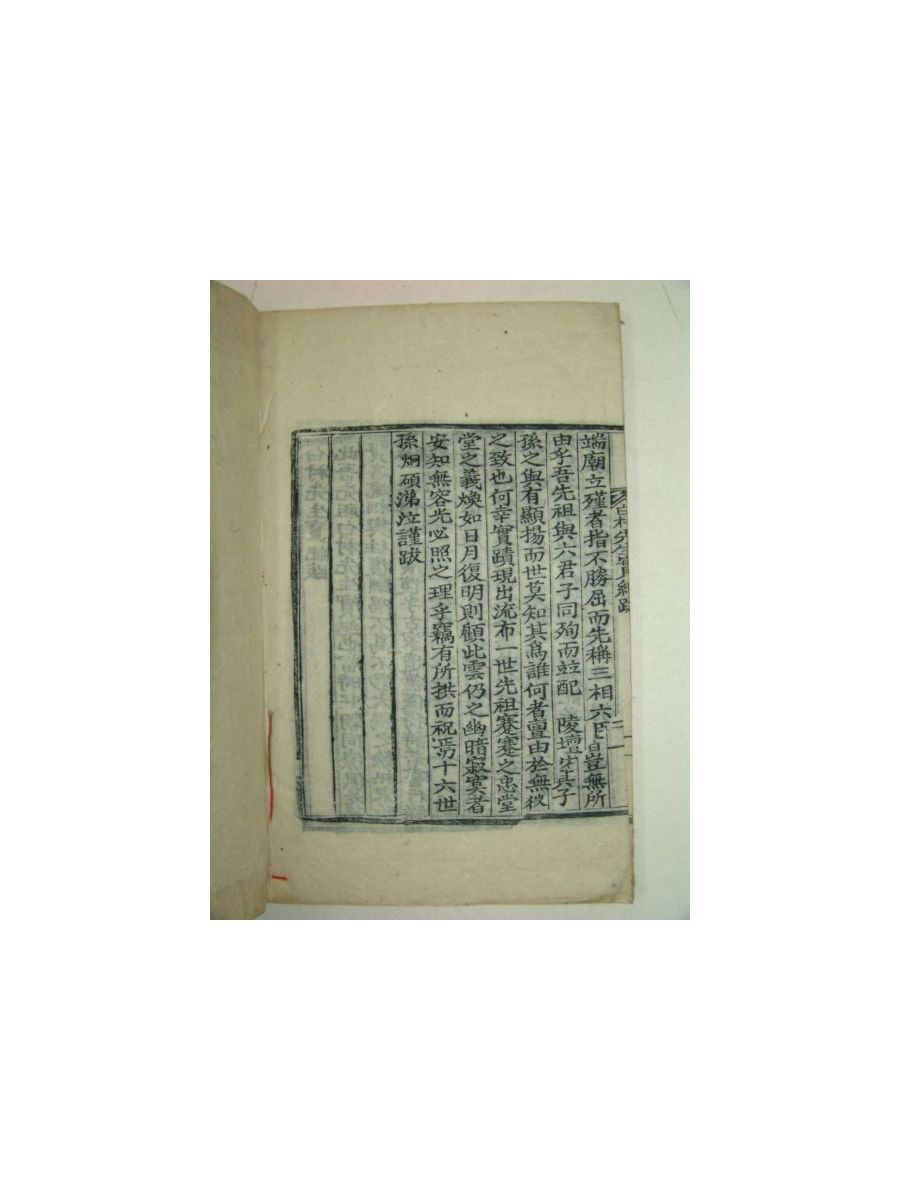 端廟立殣者指不勝屈而先稱三相六臣豈無所
由乎吾先祖與六君子同殉而並配 陵壇宲其子
孫之與有顯揚而世莫知其爲誰何者亶由於無徵
之致也何幸實蹟現出流布一世先祖蹇蹇之忠堂
堂之義煥如日月復明則顧此雲仍之幽暗寂寞者
安知無容光必照之理乎竊有所拱而祝焉十六世
孫炯碩涕泣謹跋
白村先生實紀跋